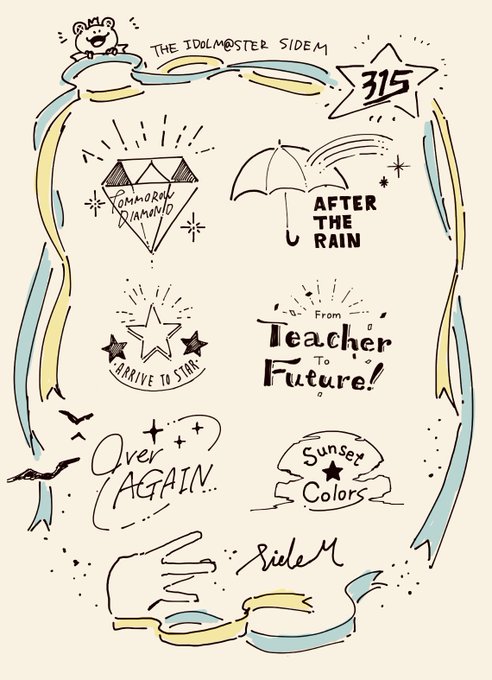 THE IDOLM@STER SIDEM
315
TOMMOROW
DIAMOND
AFTER
THE
RAIN
ARRIVE TO STAR
From
Teacher
To
Future!
Over
AGAIN...
Sunset
Colors
SideM